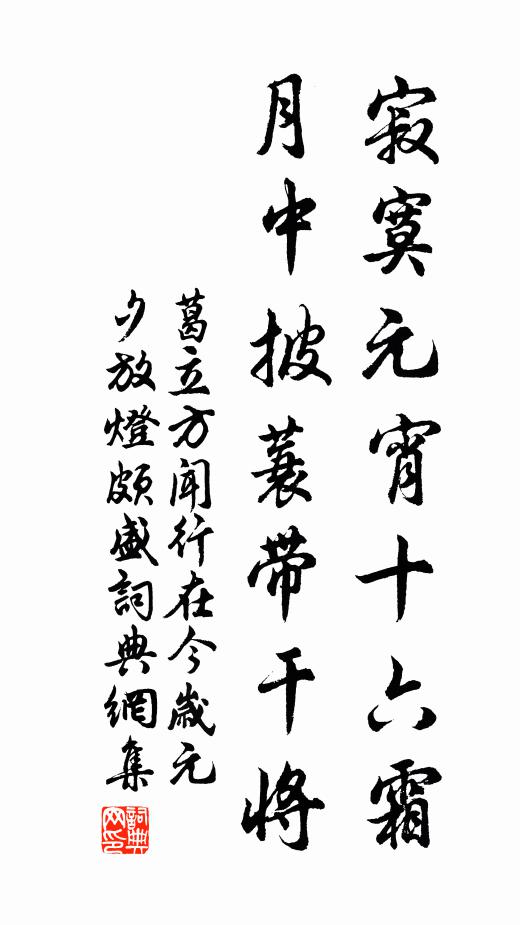 寂寞元宵十六霜
月中披蓑帶干將
葛立方聞行在今歲元
夕放燈頗盛詞典網集
詞典
网印